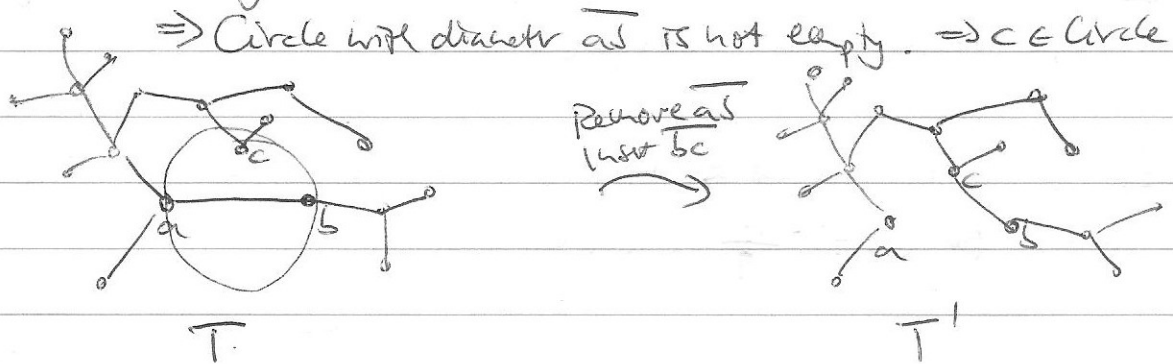 ⇒ Circle with diameter ab is not empty. ⇒ c ∈ Circle
Remove ab
Insert bc
c
a
b
c
a
b
T
T'